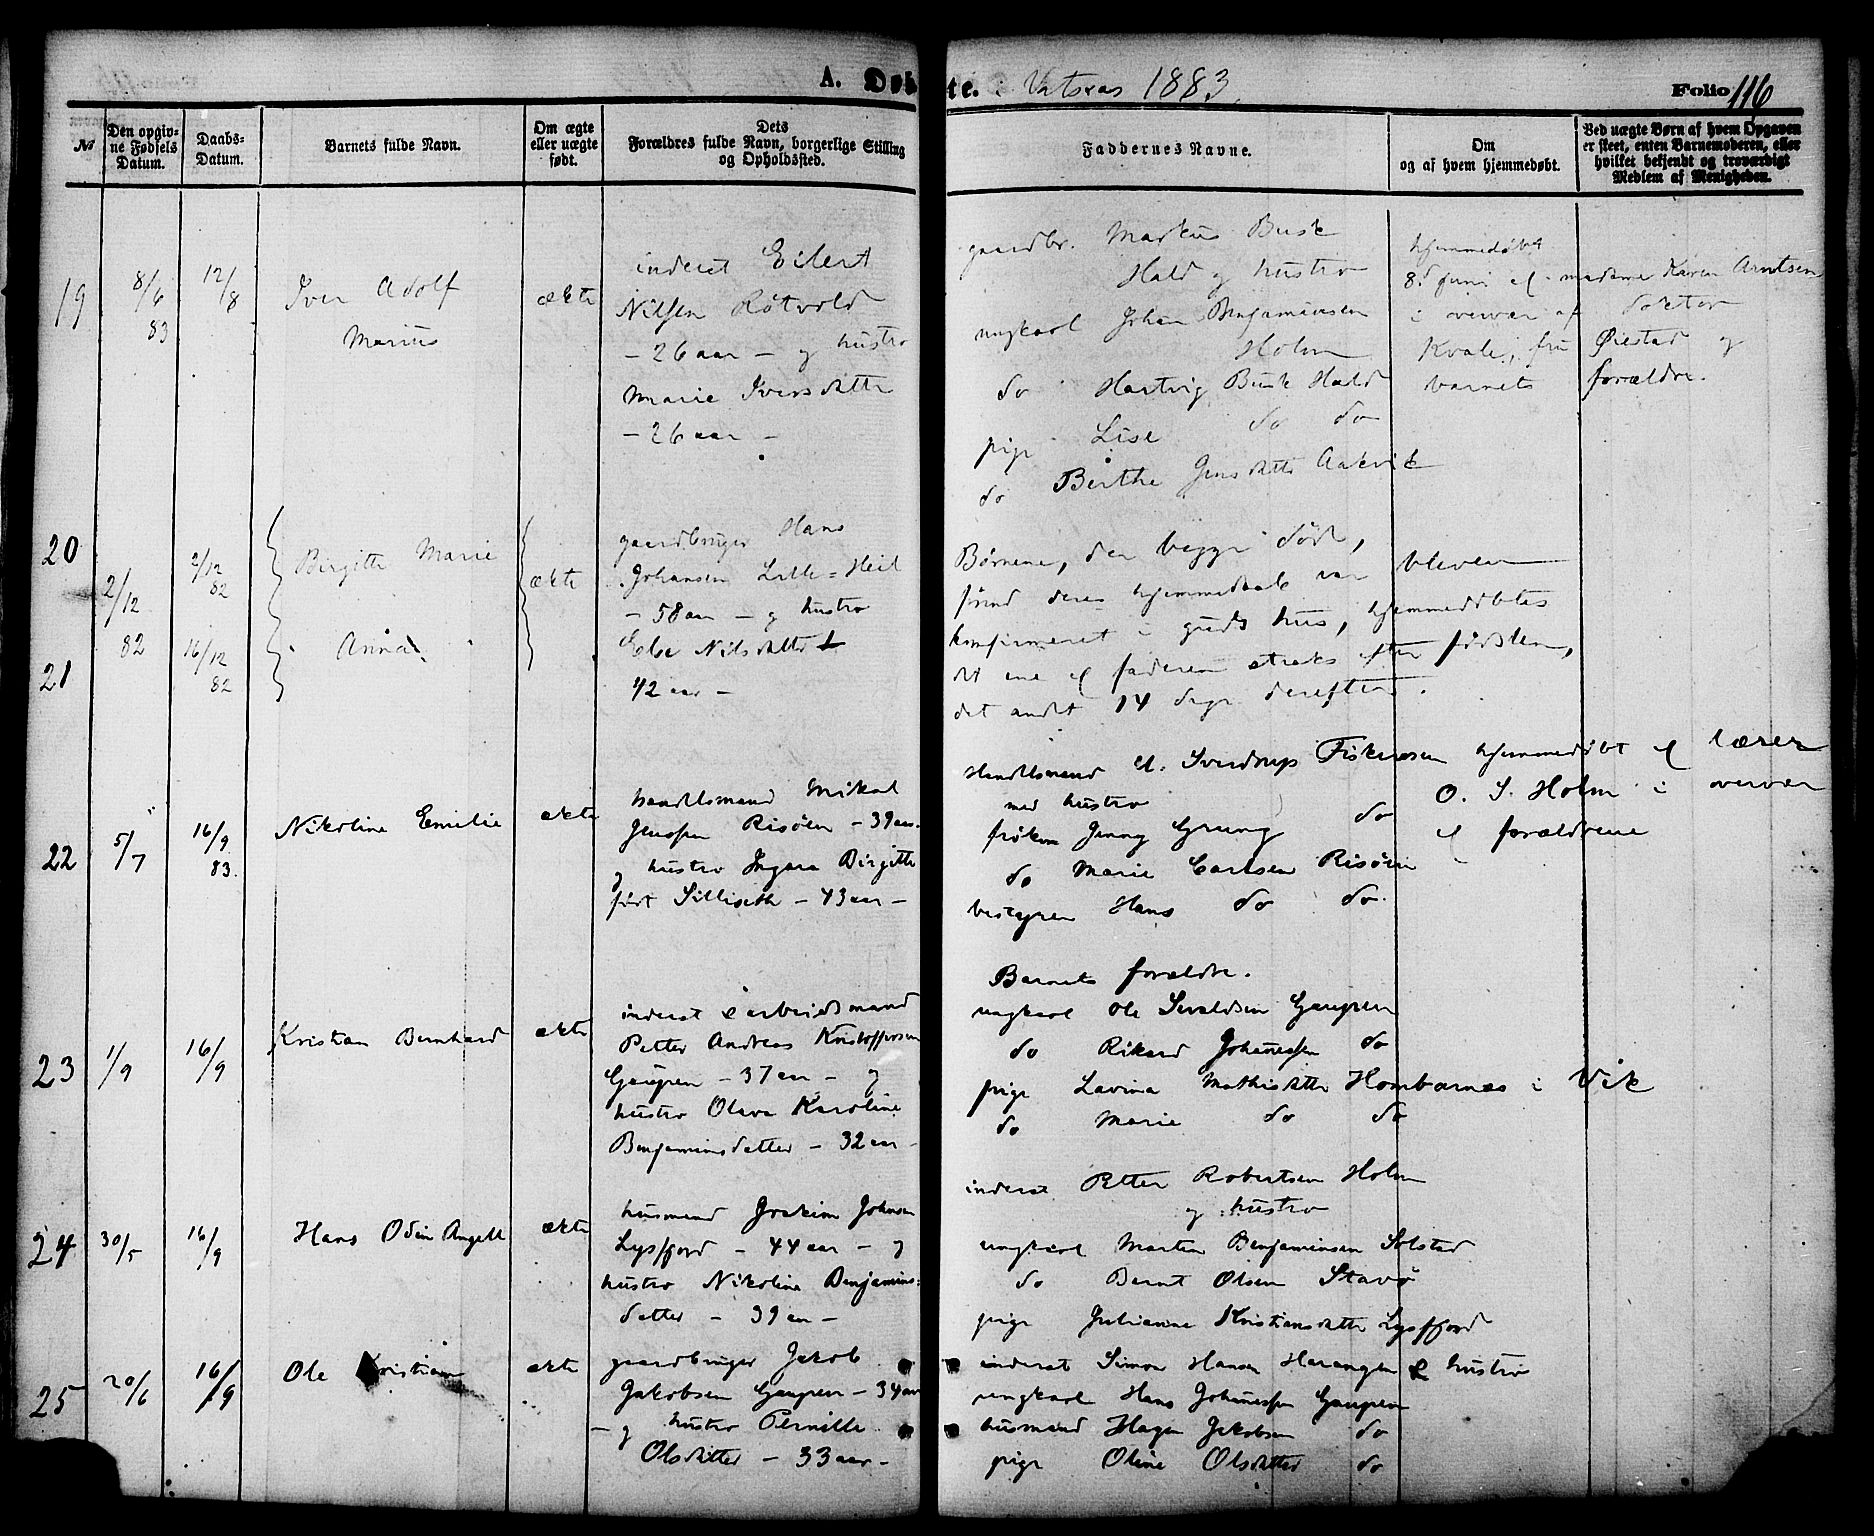 A. Døbte. i Vatsraas 1883.
Folio 116
№
Den opgivne Fødsels Datum.
Daabs-Datum.
Barnets fulde Navn.
Om ægte eller uægte født.
Dets Forældres fulde Navn, borgerlige Stilling og Opholdssted.
Faddernes Navne.
Om og af hvem hjemmedøbt.
Ved uægte Børn af hvem Opgaven er skeet, enten Barnemoderen, eller hvilket bekjendt og troværdigt Medlem af Menigheden.
19
8/6 83
12/8
Iver Adolf
Marius
ækte
inderst Eilert
Nilsen Røtvold
– 26 aar – og hustro
Marie Iversdatter
– 26 aar –
gaardbr. Markus Busk
Hald og hustro
ungkarl Johan Benjaminsen
Holm
do Hartvig Busk Hald
pige Lise do do
do Berthe Jensdatter Aakvik
hjemmedøbt
8d juni af madame Karen Arntsen
i overvær af doktor
Kvale, fru Øiestad og
barnets forældre.
20
21
2/12 82
2/12 82
16/12 82
Birgitte Marie
Anna
ækte
gaardbruger Hans
Johansen Lille-Heil
– 58 aar – og hustro
Else Nilsdatter
42 aar –
Børnene, der begge døde,
førend deres hjemmedaab var bleven
konfirmeret i guds hus, hjemmedøbtes
det ene af faderen straks efter fødslen,
det andet 14 dage derefter.
22
5/7
16/9 83.
Nikoline Emilie
ækte
handelsmand Mikal
Jenssen Risøen – 39 aar.
og hustro Ingara Birgitte
født Silliseth – 43 aar –
Handelsmand A. Sverdrup Fiskerosen
med hustro
frøken Jenny Grung do
do Marie Carlsen Risøen
bestyrer Hans do do
hjemmedøbt af lærer
O. S. Holm i overvær
af forældrene
23
1/9
16/9
Kristian Bernhard
ækte
inderst & arbeidsmand
Petter Andreas Kristoffersen
Gaupen – 37 aar – og
hustro Olava Karoline
Benjaminsdatter – 32 aar –
Barnets forældre.
ungkarl Ole Sivaldsen Gaupen
do Rikard Johannessen do
pige Lavina Mathisdatter Hombornes i Vik
do Marie do do
24
30/5
16/9
Hans Odin Angell
ækte
husmand Joakim Johnsen
Lysfjord – 44 aar – og
hustro Nikoline Benjamins-
datter – 39 aar –
inderst Petter Robertsen Holm
og hustro
ungkarl Martin Benjaminsen Solstad
do Bernt Olsen Stavø
pige Julianne Kristiansdatter Lysfjord
25
20/6
16/9
Ole Kristian
ækte
gaardbruger Jakob
Jakobsen Gaupen – 34 aar
– og hustro Pernille
Olsdatter – 33 aar –
inderst Simon Hansen Harangen & hustro
ungkarl Hans Johannessen Gaupen
husmand Hagen Jakobsen do
pige Oline Olsdatter do